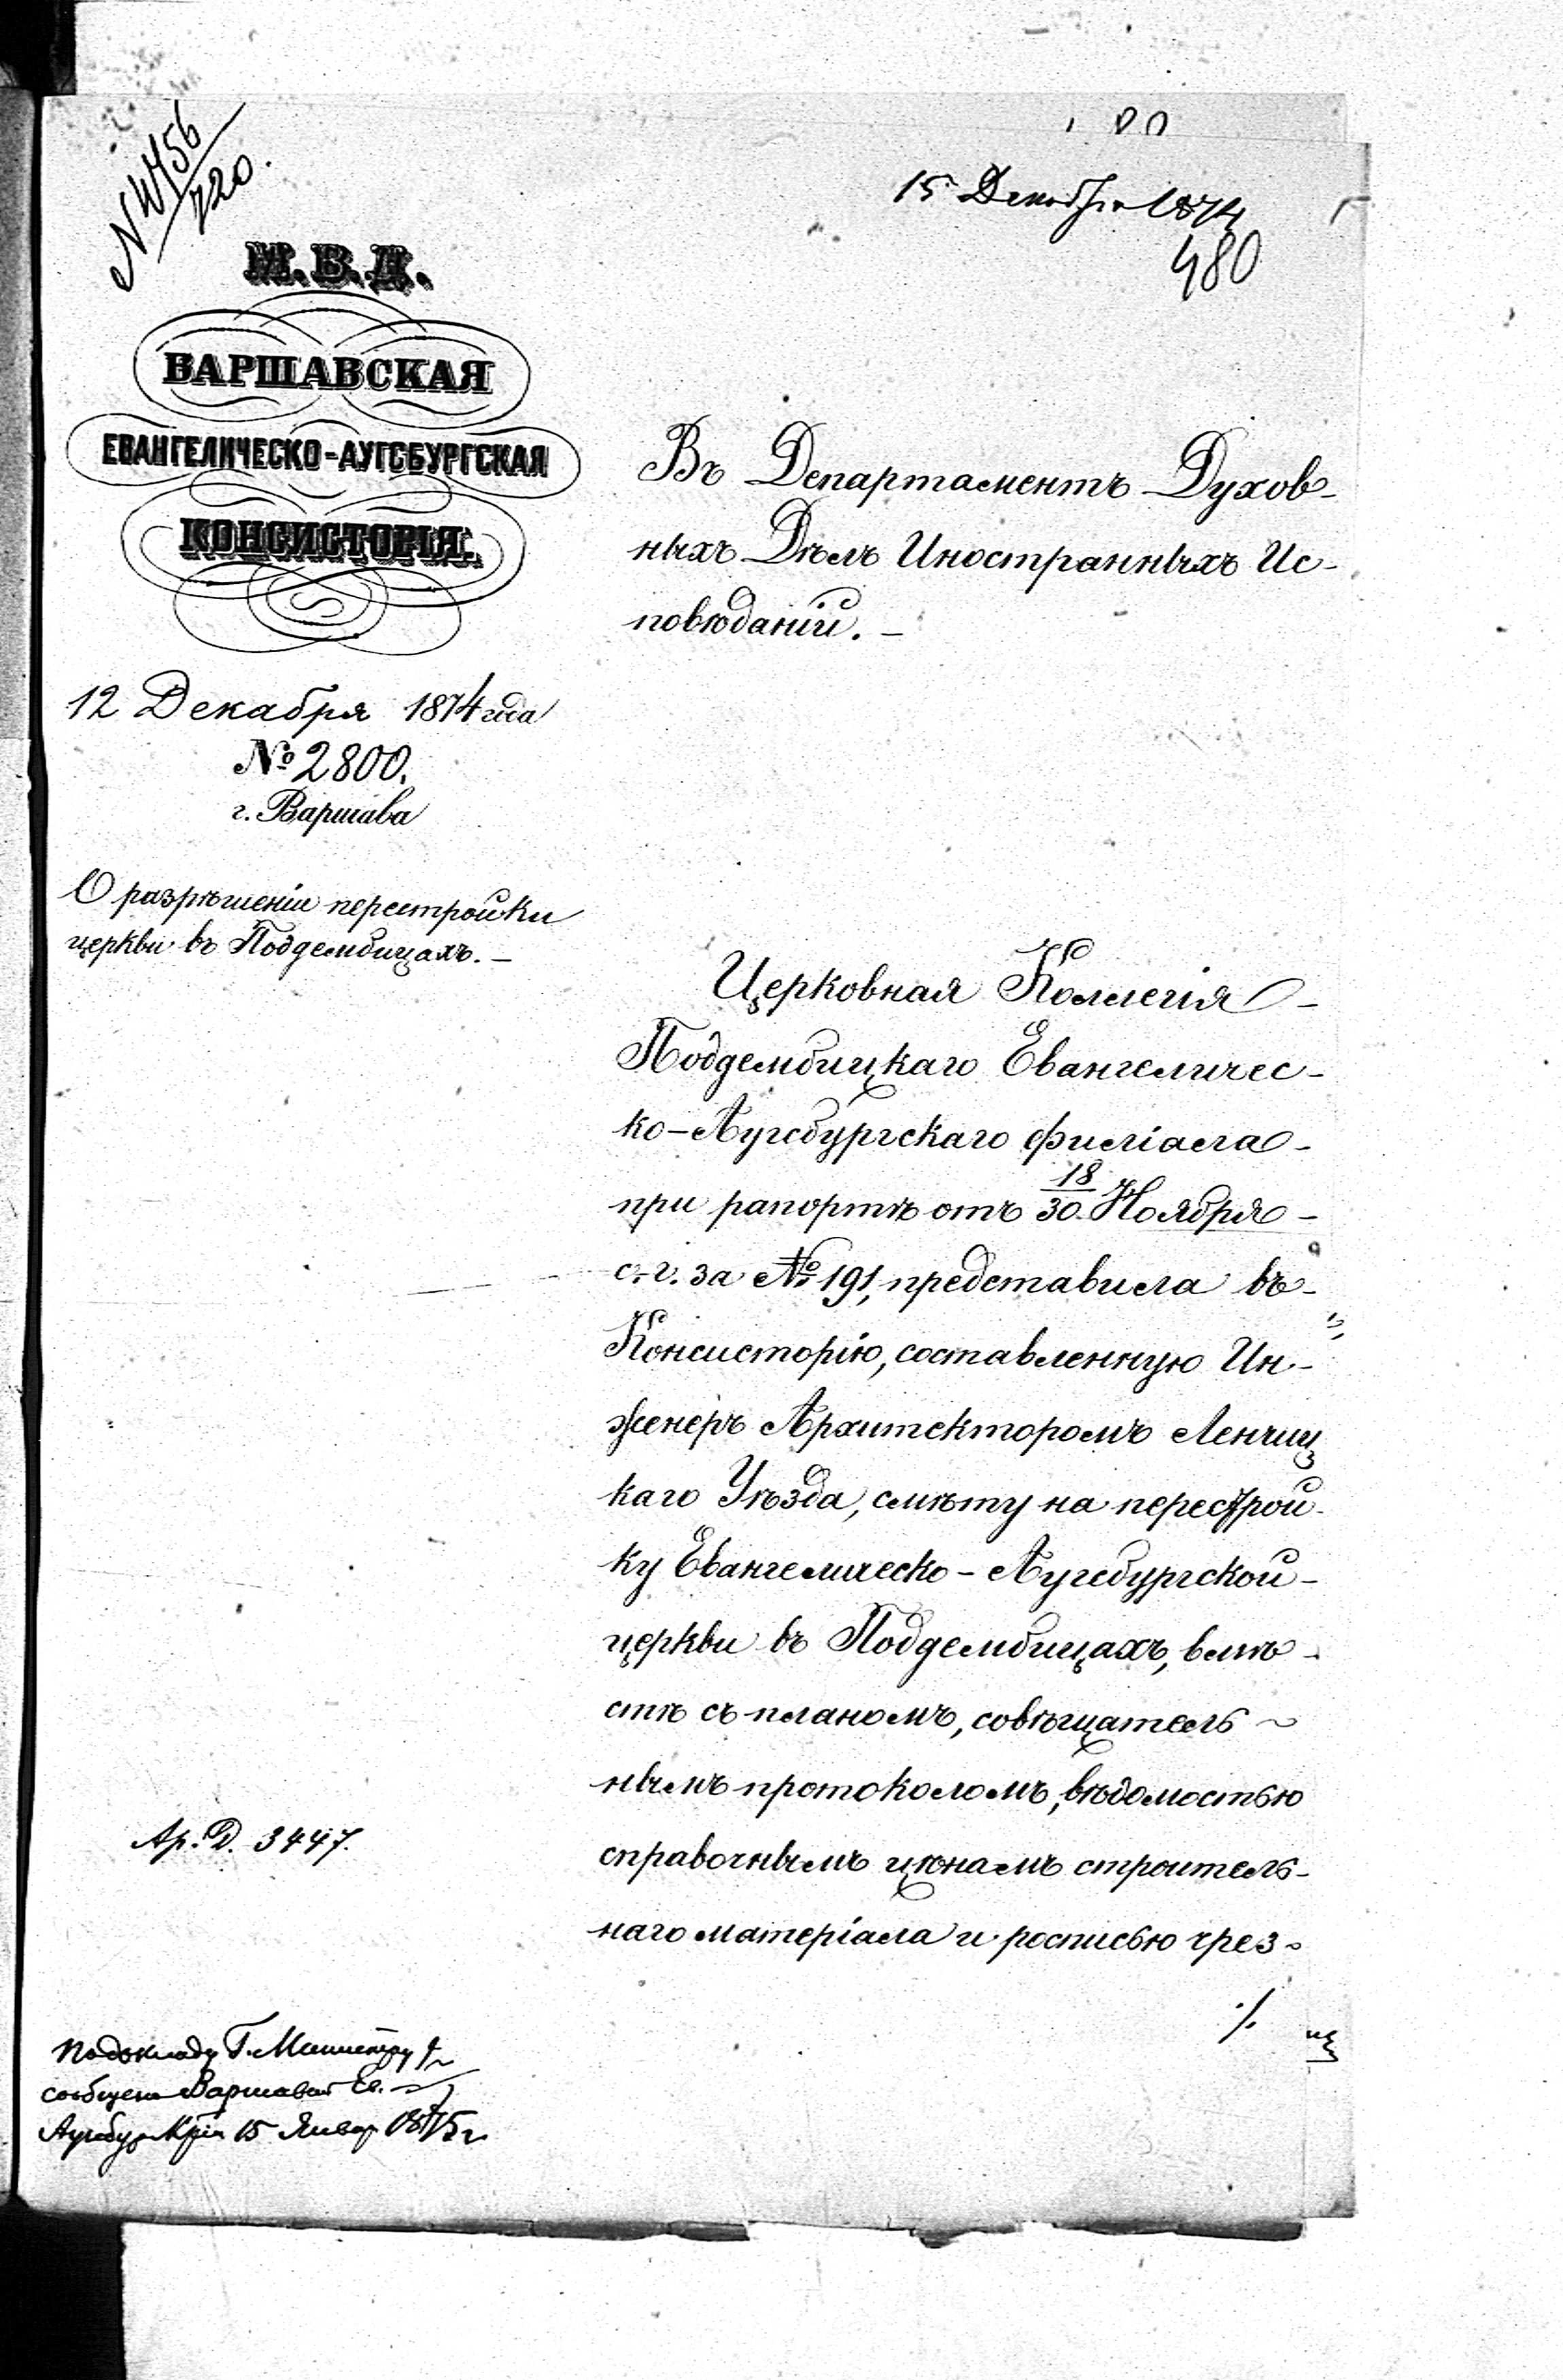 № 4756
720.
15 Декабря 1874
480
М.В.Д.
ВАРШАВСКАЯ
ЕВАНГЕЛИЧЕСКО-АУГСБУРГСКАЯ
КОНСИСТОРІЯ.
12 Декабря 1874 года
№ 2800.
г. Варшава
О разрѣшеніи перестройки
церкви въ Поддембицахъ. –
Въ Департаментъ Духов-
ныхъ Дѣлъ Иностранныхъ Ис-
повѣданій. –
Церковная Коллегія –
Поддембицкаго Евангеличес-
ко-Аугсбургскаго Филіала –
при рапортѣ отъ 18/30 Ноября –
с. г. за № 191, представила въ –
Консисторію, составленную Ин-
женеръ Архитекторомъ Ленчиц
каго Уѣзда, смѣту на перестрой-
ку Евангелическо-Аугсбургской –
церкви въ Поддембицахъ, вмѣ-
стѣ съ планомъ, совѣщатель-
нымъ протоколомъ, вѣдомостью
справочнымъ цѣнамъ строитель-
наго матеріала и росписью чрез-
./.
Ар. Д. 3447.
По докладу Г. Министру
сообщено Варшавской Ев.
Аугсбур 15 Январ 1875 г.